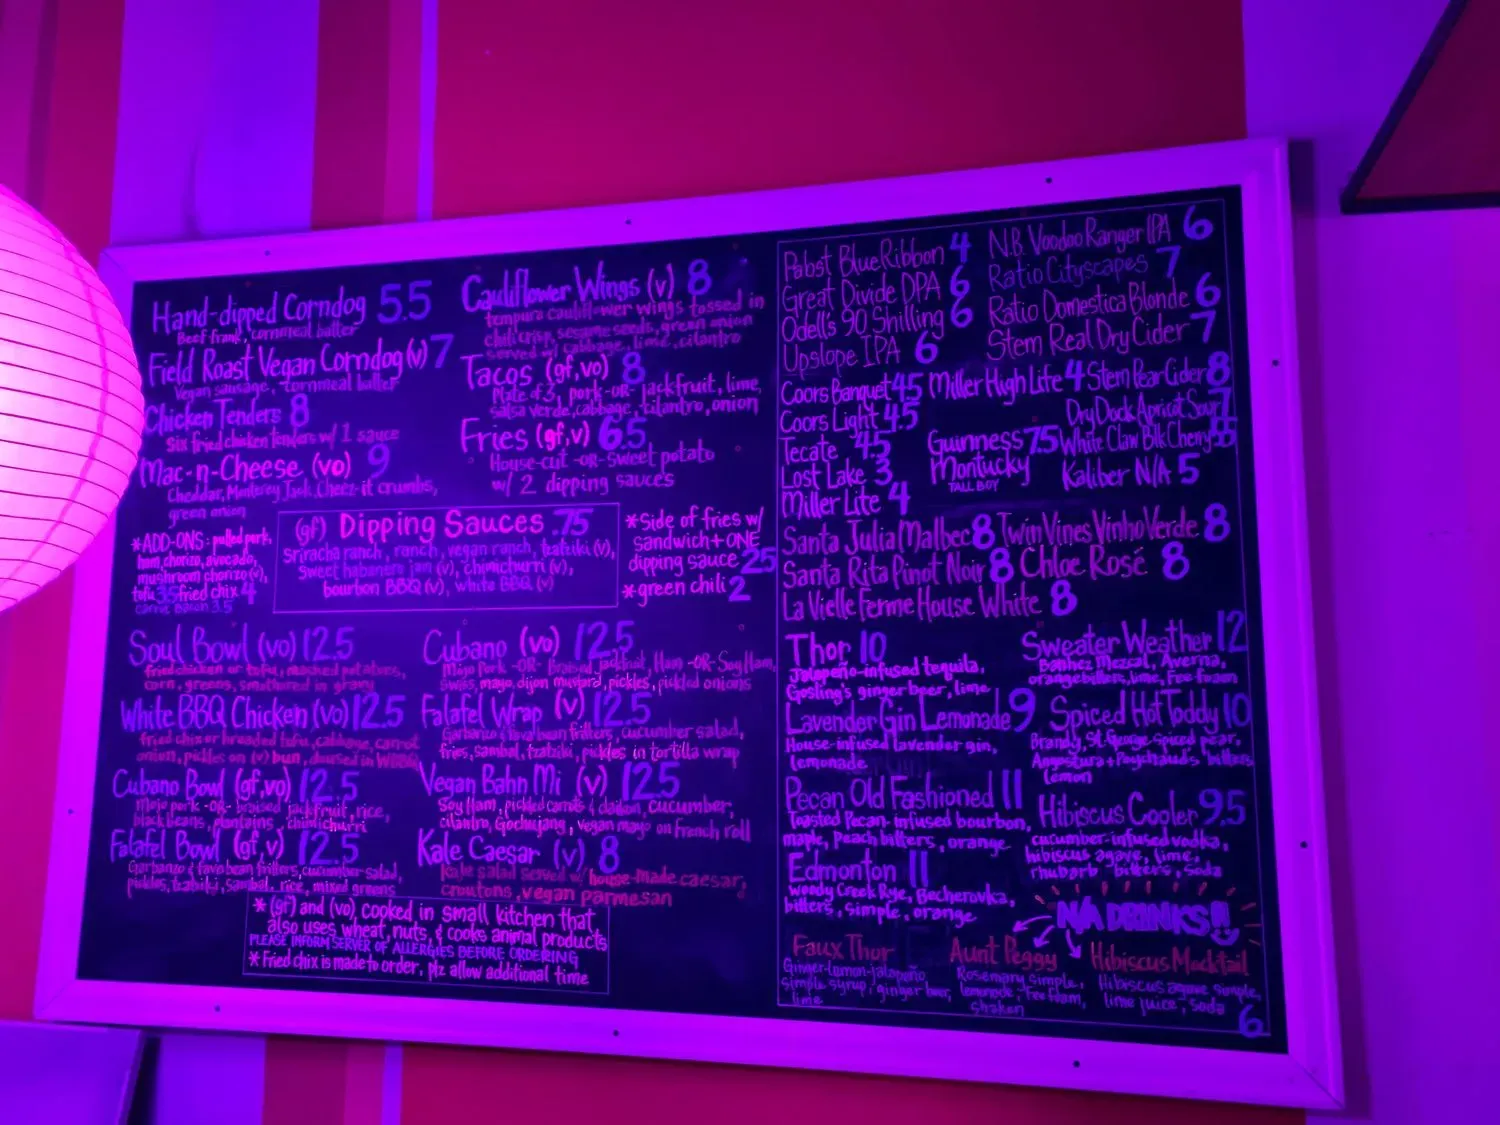 Hand-dipped Corndog 5.5
Beef frank, cornmeal batter
Field Roast Vegan Corndog (v) 7
Vegan sausage, cornmeal batter
Chicken Tenders 8
Six fried chicken tenders w/ 1 sauce
Mac-n-Cheese (vo) 9
Cheddar, Monterey Jack, Cheez-it crumbs,
green onion
Cauliflower Wings (v) 8
tempura cauliflower wings tossed in
chili crisp, sesame seeds, green onion
served w/ cabbage, lime, cilantro
Tacos (gf,vo) 8
Plate of 3, pork -OR- jackfruit, lime,
salsa verde, cabbage, cilantro, onion
Fries (gf,v) 6.5
House-cut -OR- sweet potato
w/ 2 dipping sauces
*ADD-ONS: pulled pork,
ham, chorizo, avocado,
mushroom chorizo (v),
tofu 3.5 fried chix 4
bacon 3.5
(gf) Dipping Sauces .75
Sriracha ranch, ranch, vegan ranch, tzatziki (v),
Sweet habanero jam (v), chimichurri (v),
bourbon BBQ (v), white BBQ (v)
*Side of fries w/
sandwich + ONE
dipping sauce 2.5
*green chili 2
Soul Bowl (vo) 12.5
fried chicken or tofu, mashed potatoes,
corn, greens, smothered in gravy
White BBQ Chicken (vo) 12.5
fried chix or breaded tofu, cabbage, carrot
onion, pickles on (v) bun, doused in WBBQ
Cubano Bowl (gf,vo) 12.5
Mojo pork -OR- braised jackfruit, rice,
black beans, plantains, chimichurri
Falafel Bowl (gf,v) 12.5
Garbanzo & fava bean fritters, cucumber salad,
pickles, tzatziki, sambal, rice, mixed greens
Cubano (vo) 12.5
Mojo Pork -OR- Braised Jackfruit, Ham -OR- Soy Ham,
Swiss, mayo, dijon mustard, pickles, pickled onions
Falafel Wrap (v) 12.5
Garbanzo & fava bean fritters, cucumber salad,
fries, sambal, tzatziki, pickles in tortilla wrap
Vegan Bahn Mi (v) 12.5
Soy Ham, pickled carrots & daikon, cucumber,
cilantro, Gochujang, vegan mayo on French roll
Kale Caesar (v) 8
Kale salad served w/ house-made caesar,
croutons, vegan parmesan
* (gf) and (vo) cooked in small kitchen that
also uses wheat, nuts, & cooks animal products
PLEASE INFORM SERVER OF ALLERGIES BEFORE ORDERING
* Fried chix is made to order, plz allow additional time
Pabst Blue Ribbon 4
Great Divide DPA 6
Odell's 90 Shilling 6
Upslope IPA 6
N.B. Voodoo Ranger IPA 6
Ratio Cityscapes 7
Ratio Domestica Blonde 6
Stem Real Dry Cider 7
Coors Banquet 4.5
Coors Light 4.5
Tecate 4.5
Lost Lake 3
Miller Lite 4
Miller High Life 4
Guinness 7.5
Montucky
TALL BOY
Stem Pear Cider 8
Dry Dock Apricot Sour 7
White Claw Blk Cherry
Kaliber N/A 5
Santa Julia Malbec 8
Santa Rita Pinot Noir 8
La Vielle Ferme House White 8
Twin Vines Vinho Verde 8
Chloe Rosé 8
Thor 10
Jalapeño-infused tequila,
Gosling's ginger beer, lime
Lavender Gin Lemonade 9
House-infused lavender gin,
lemonade
Pecan Old Fashioned 11
Toasted Pecan-infused bourbon,
maple, peach bitters, orange
Edmonton 11
Woody Creek Rye, Becherovka,
bitters, simple, orange
Sweater Weather 12
Banhez Mezcal, Averna,
orange bitters, lime, Fee foam
Spiced Hot Toddy 10
Brandy, St. George spiced pear,
Angostura + Paychaud's bitters
lemon
Hibiscus Cooler 9.5
cucumber-infused vodka,
hibiscus agave, lime,
rhubarb bitters, soda
N/A DRINKS!!
Faux Thor
Ginger-lemon-jalapeño
simple syrup, ginger beer,
lime
Aunt Peggy
Rosemary simple,
lemonade, Fee foam,
shaken
Hibiscus Mocktail
Hibiscus agave simple,
lime juice, soda
6